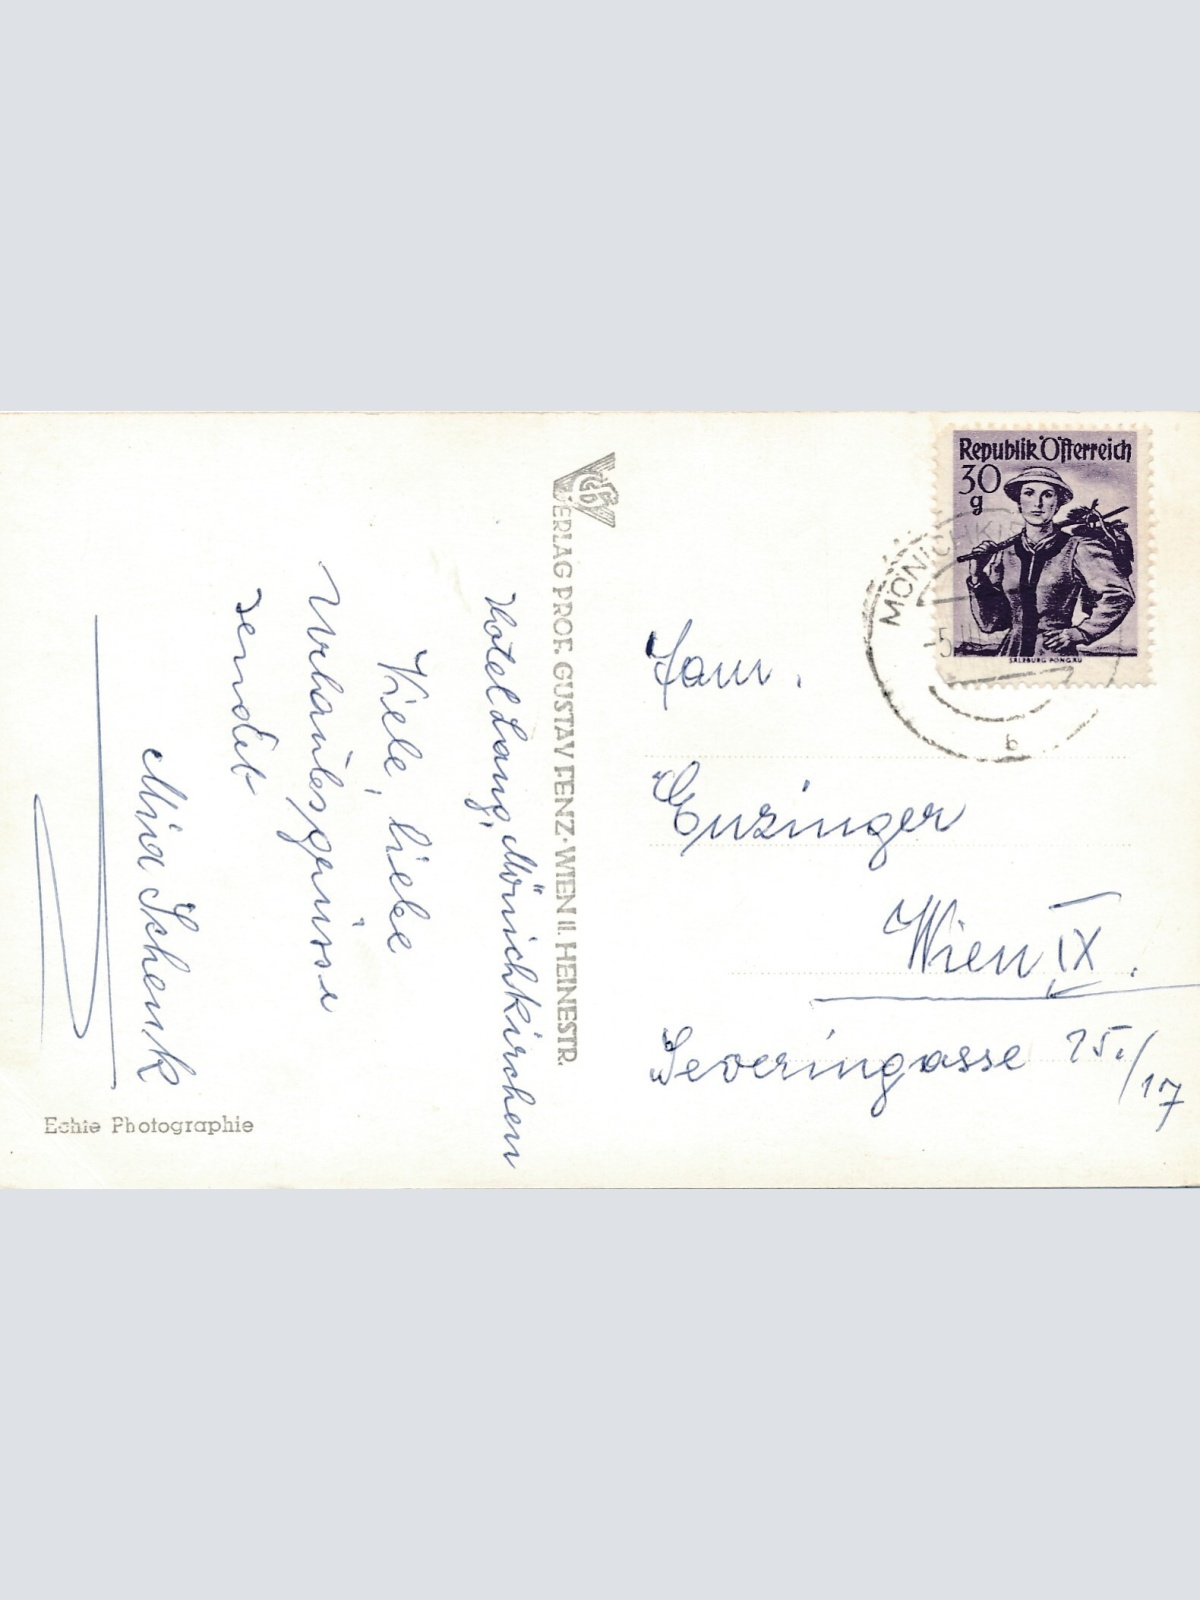 Hotel Lang, Mönichkirchen
Viele, liebe
Urlaubsgrüsse
sendet
Mia Schenk
Echte Photographie
VERLAG PROF. GUSTAV FENZ · WIEN II. HEINESTR.
Republik Österreich
30
g
SALZBURG PONGAU
MÖNICHKI
-5
b
Fam.
Enzinger
Wien IX.
Severingasse 15./17